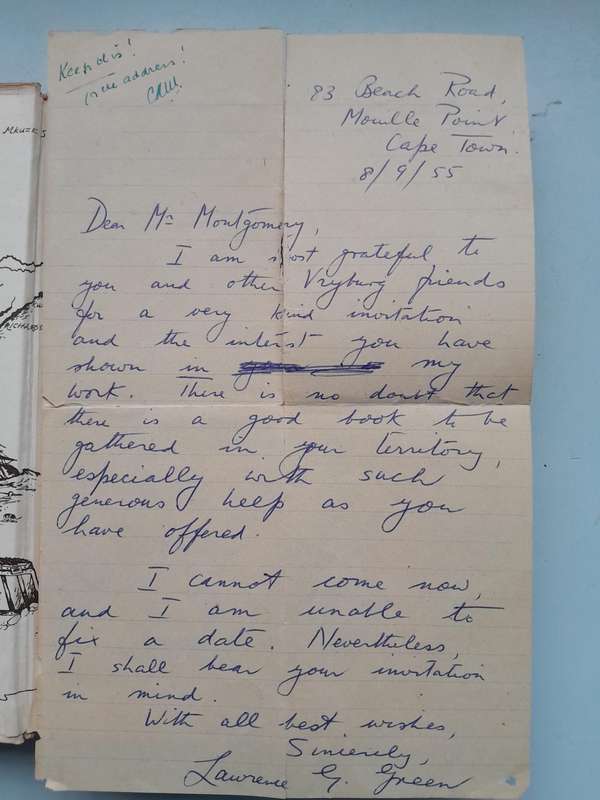 Keep dis!
Sien address!
83 Beach Road,
Mouille Point
Cape Town.
8/9/55
Dear Mr Montgomery,
I am most grateful to
you and other Vryburg friends
for a very kind invitation
and the interest you have
shown in my
work. There is no doubt that
there is a good book to be
gathered in your territory,
especially with such
generous help as you
have offered.
I cannot come now,
and I am unable to
fix a date. Nevertheless,
I shall bear your invitation
in mind.
With all best wishes,
Sincerely,
Lawrence G. Green